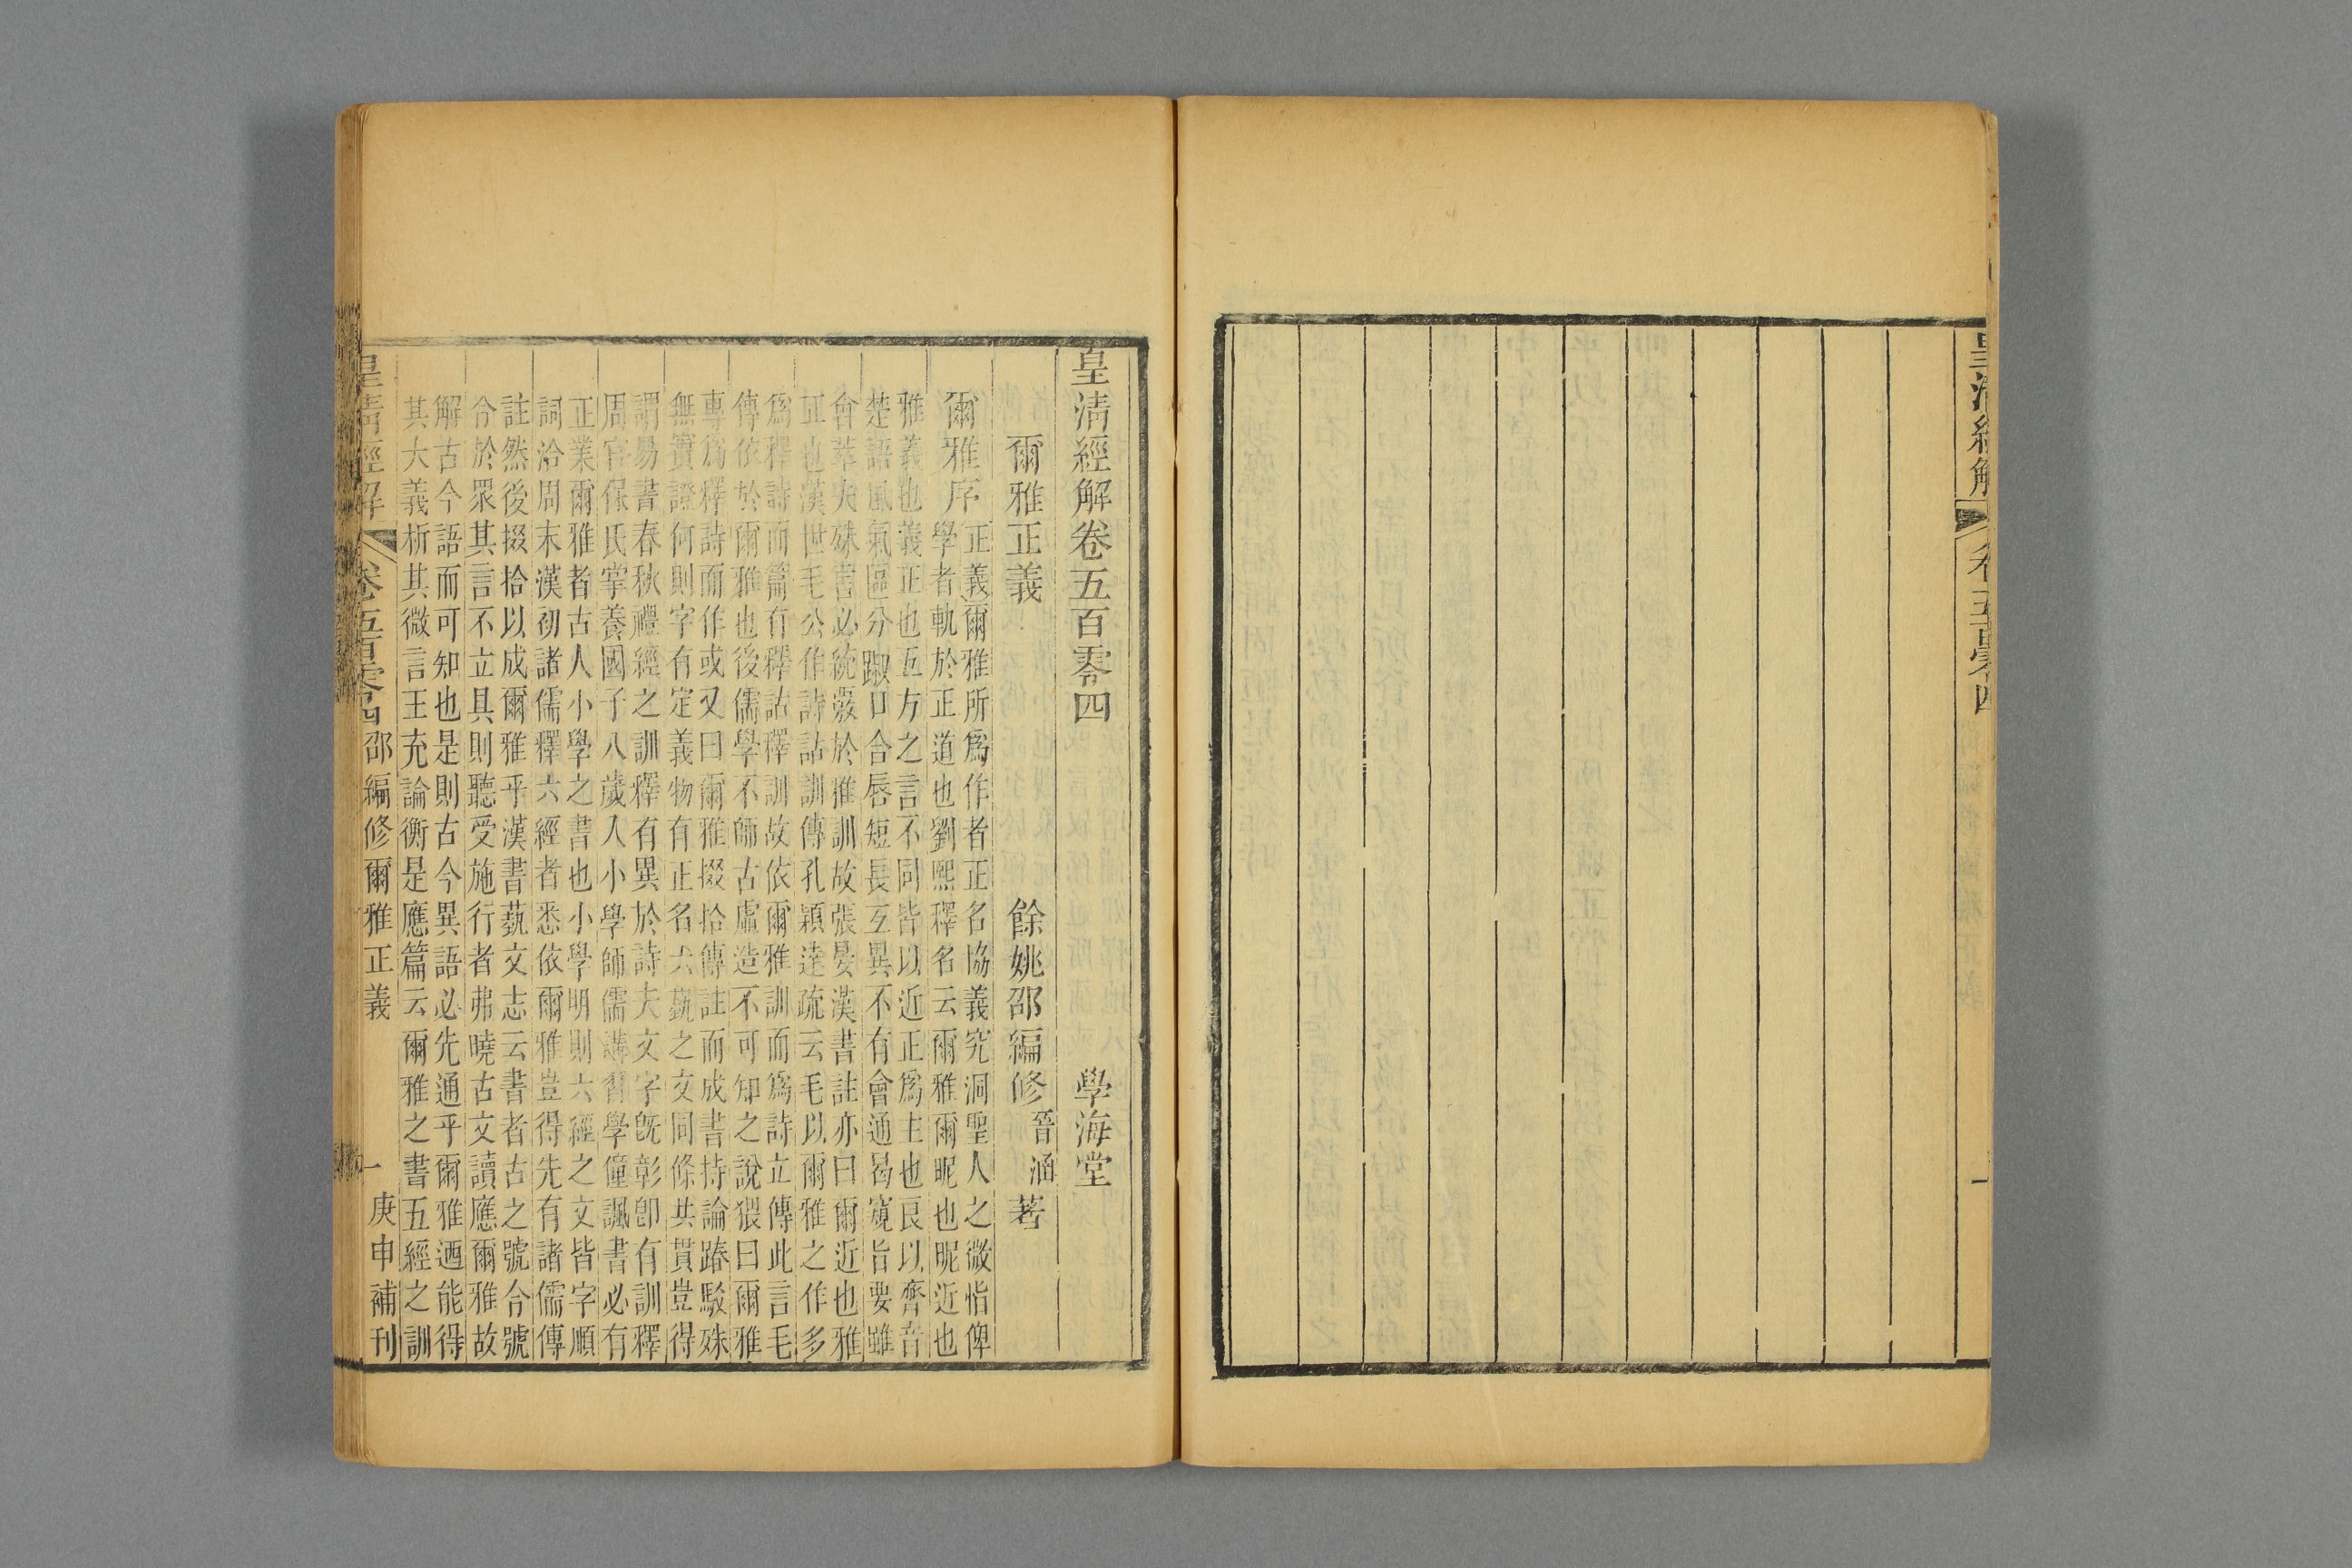 皇清經解
卷五百零四
一
皇清經解卷五百零四
學海堂
爾雅正義
餘姚邵編修晉涵著
爾雅序
正義爾雅所爲作者正名協義究洞聖人之微恉俾
學者軌於正道也劉熙釋名云爾雅爾昵也昵近也
雅義也義正也五方之言不同皆以近正爲主也良以齊音
楚語風氣區分踧口合唇短長互異不有會通曷窺旨要雖
會萃大殊言必統叢於雅訓故張晏漢書註亦曰爾近也雅
正也漢世毛公作詩詁訓傳孔穎達疏云毛以爾雅之作多
爲釋詩而篇有釋詁釋訓故依爾雅訓而爲詩立傳此言毛
傳依於爾雅也後儒學不師古虛造不可知之說猥曰爾雅
專爲釋詩而作或又曰爾雅掇拾傳註而成書持論踳駁殊
無實證何則字有定義物有正名六藝之文同條共貫豈得
謂易書春秋禮經之訓釋有異於詩夫文字旣彰卽有訓釋
周官保氏掌養國子八歲入小學師儒講習學僮諷書必有
正業爾雅者古人小學之書也小學明則六經之文皆字順
詞洽周末漢初諸儒釋六經者悉依爾雅豈得先有諸儒傳
註然後掇拾以成爾雅乎漢書藝文志云書者古之號令號
令於眾其言不立具則聽受施行者弗曉古文讀應爾雅故
解古今語而可知也是則古今異語必先通乎爾雅迺能得
其大義析其微言王充論衡是應篇云爾雅之書五經之訓
皇清經解
卷五百零四
邵編修爾雅正義
一
庚申補刊